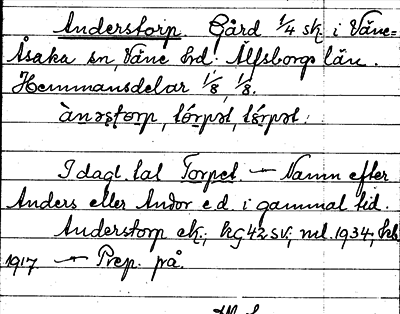 Anderstorp. Gård 1/4 sk. i Väne-
Åsaka sn, Väne hd. Älfsborgs län.
Hemmansdelar 1/8, 1/8.
I dagl. tal Torpet. — Namn efter
Anders eller Andor e.d. i gammal tid.
Anderstorp ek.; kg 42 SV; ml. 1934; kb
1917. — Prep. på.